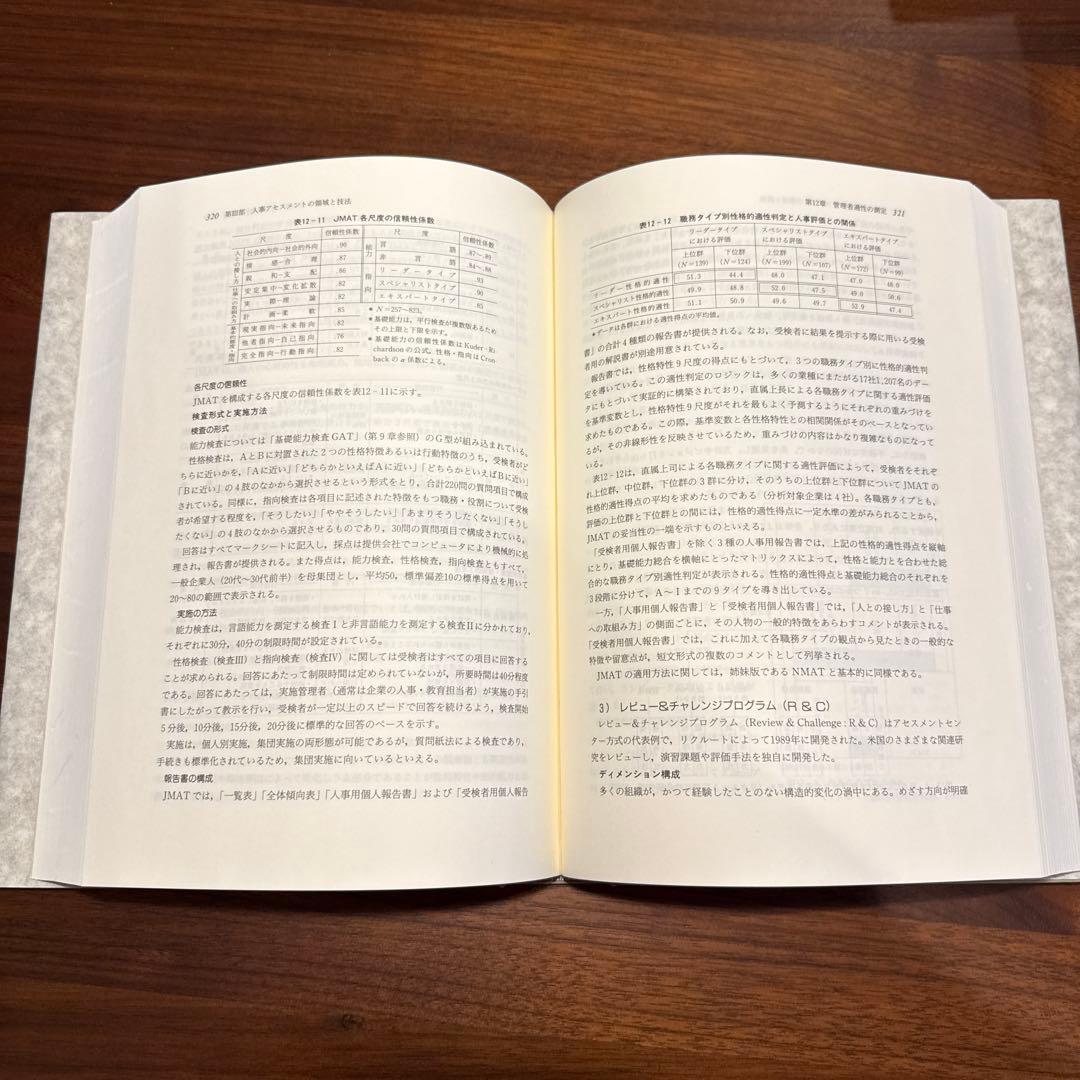 320 第Ⅲ部 人事アセスメントの領域と技法
表12-11 JMAT 各尺度の信頼性係数
尺 度 信頼性係数
社会的内向－社会的外向 .90
情 感－合 理 .87
親 和－支 配 .86
安定集中－変化拡散 .82
実 際－理 論 .82
計 画－柔 軟 .85
現実指向－未来指向 .82
他者指向－自己指向 .76
完全指向－行動指向 .82
尺 度 信頼性係数
能力 言 語 .87～.89
非 言 語 .84～.88
指向 リーダータイプ .93
スペシャリストタイプ .90
エキスパートタイプ .85
＊N＝257～823。
＊基礎能力は，平行検査が複数版あるため
その上限と下限を示す。
＊基礎能力の信頼性係数は Kuder-Ri
chardson の公式，性格・指向は Cron
back の α 係数による。
各尺度の信頼性
JMATを構成する各尺度の信頼性係数を表12-11に示す。
検査形式と実施方法
検査の形式
能力検査については「基礎能力検査 GAT」（第9章参照）のG型が組み込まれている。
性格検査は，AとBに対置された2つの性格特徴あるいは行動特徴のうち，受検者がど
ちらに近いかを，「Aに近い」「どちらかといえばAに近い」「どちらかといえばBに近い」
「Bに近い」の4肢のなかから選択させるという形式をとり，合計220問の質問項目で構成
されている。同様に，指向検査は各項目に記述された特徴をもつ職務・役割について受検
者が希望する程度を，「そうしたい」「ややそうしたい」「あまりそうしたくない」「そうし
たくない」の4肢のなかから選択させるものであり，30問の質問項目で構成されている。
回答はすべてマークシートに記入し，採点は提供会社でコンピュータにより機械的に処
理され，報告書が提供される。また得点は，能力検査，性格検査，指向検査ともすべて，
一般企業人（20代～30代前半）を母集団とし，平均50，標準偏差10の標準得点を用いて
20～80の範囲で表示される。
実施の方法
能力検査は，言語能力を測定する検査Ⅰと非言語能力を測定する検査Ⅱに分かれており，
それぞれに30分，40分の制限時間が設定されている。
性格検査（検査Ⅲ）と指向検査（検査Ⅳ）に関しては受検者はすべての項目に回答する
ことが求められる。回答にあたって制限時間は定められていないが，所要時間は40分程度
である。回答にあたっては，実施管理者（通常は企業の人事・教育担当者）が実施の手引
書にしたがって教示を行い，受検者が一定以上のスピードで回答を続けるよう，検査開始
5分後，10分後，15分後，20分後に標準的な回答のペースを示す。
実施は，個人別実施，集団実施の両形態が可能であるが，質問紙法による検査であり，
手続きも標準化されているため，集団実施に向いているといえる。
報告書の構成
JMATでは，「一覧表」「全体傾向表」「人事用個人報告書」および「受検者用個人報告
第12章 管理者適性の測定 321
表12-12 職務タイプ別性格的適性判定と人事評価との関係
リーダータイプにおける評価 スペシャリストタイプにおける評価 エキスパートタイプにおける評価
上位群 (N=139) 下位群 (N=124) 上位群 (N=199) 下位群 (N=107) 上位群 (N=172) 下位群 (N=99)
リーダー性格的適性 51.3 44.4 48.0 47.1 47.0 48.0
スペシャリスト性格的適性 49.9 48.8 52.0 47.5 49.0 50.6
エキスパート性格的適性 51.1 50.9 49.6 49.7 52.9 47.4
＊データは各群における適性得点の平均値。
書」の合計4種類の報告書が提供される。なお，受検者に結果を提示する際に用いる受検
者用の解説書が別途用意されている。
報告書では，性格特性9尺度の得点にもとづいて，3つの職務タイプ別に性格的適性判
定を導いている。この適性判定のロジックは，多くの業種にまたがる17社1,207名のデー
タにもとづいて実証的に構築されており，直属上長による各職務タイプに関する適性評価
を基準変数とし，性格特性9尺度がそれを最もよく予測するようにそれぞれの重みづけを
求めたものである。この際，基準変数と各性格特性との相関関係がそのベースとなってい
るが，その非線形性を反映させているため，重みづけの内容はかなり複雑なものになって
いる。
表12-12は，直属上司による各職務タイプに関する適性評価によって，受検者をそれぞ
れ上位群，中位群，下位群の3群に分け，そのうちの上位群と下位群についてJMATの
性格的適性得点の平均を求めたものである（分析対象企業は4社）。各職務タイプとも，
評価の上位群と下位群との間には，性格的適性得点に一定水準の差がみられることから，
JMATの妥当性の一端を示すものといえる。
「受検者用個人報告書」を除く3種の人事用報告書では，上記の性格的適性得点を縦軸
にとり，基礎能力総合を横軸にとったマトリックスによって，性格と能力とを合わせた総
合的な職務タイプ別適性判定が表示される。性格的適性得点と基礎能力総合のそれぞれを
3段階に分けて，A～Iまでの9タイプを導き出している。
一方，「人事用個人報告書」と「受検者用個人報告書」では，「人との接し方」と「仕事
への取組み方」の側面ごとに，その人物の一般的特徴をあらわすコメントが表示される。
「受検者用個人報告書」では，これに加えて各職務タイプの観点から見たときの一般的な
特徴や留意点が，短文形式の複数のコメントとして列挙される。
JMATの適用方法に関しては，姉妹版であるNMATと基本的に同様である。
3） レビュー&チャレンジプログラム（R & C）
レビュー&チャレンジプログラム（Review & Challenge : R & C）はアセスメントセン
ター方式の代表例で，リクルートによって1989年に開発された。米国のさまざまな関連研
究をレビューし，演習課題や評価手法を独自に開発した。
ディメンション構成
多くの組織が，かつて経験したことのない構造的変化の渦中にある。めざす方向が明確